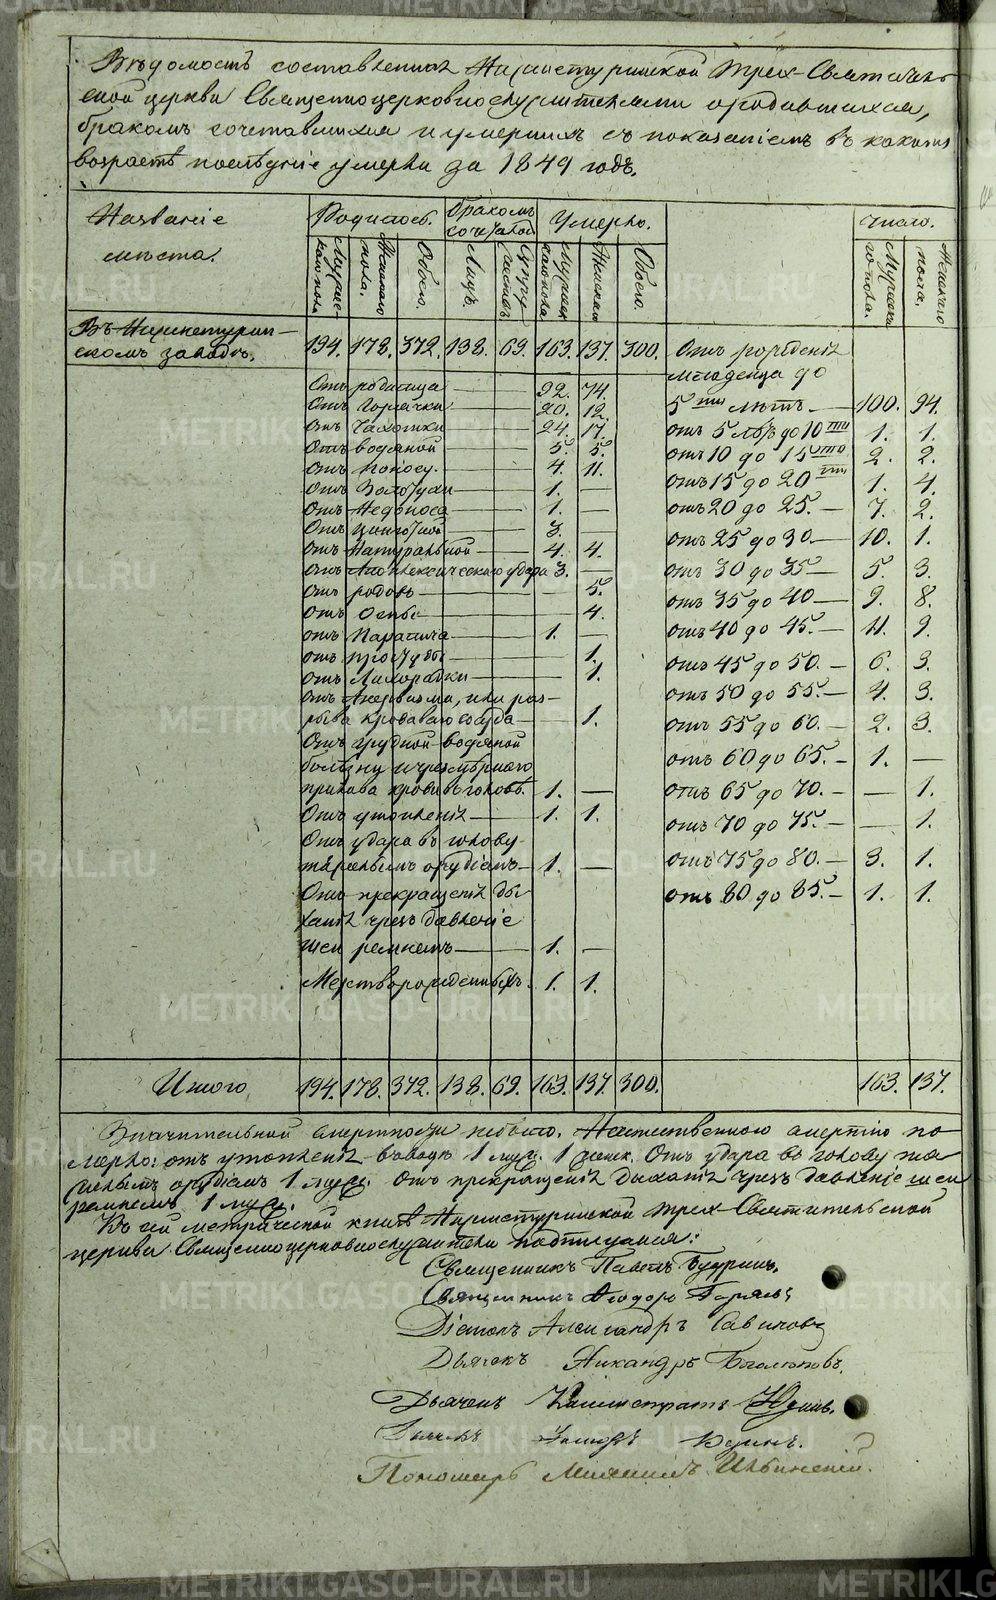 Вѣдомость составленная Нижнетуринской Трех-Святитель-
ской церкви Священноцерковнослужителями о родившихся,
браком сочетавшихся и умерших съ показаніемъ въ каких
возрастѣ послѣдніе умерли за 1849 годъ.
Названіе мѣста.
Родилось. Мужескаго пола. Женскаго пола. Обоего.
Бракомъ сочеталось Лицъ. Супружествъ.
Умерло. Мужескаго пола Женскаго Обоего.
Число. Мужескаго пола. Женскаго пола.
Въ Нижнетурин-
скомъ заводѣ. 194. 178. 372. 138. 69. 163. 137. 300.
Отъ родимца 92. 74.
Отъ Горячки 20. 12.
Отъ Чахотки 24. 17.
Отъ водяной 5. 5.
Отъ поносу. 4. 11.
Отъ Золотухи 1. —
Отъ Недоноса 1. —
Отъ цынготной 3. —
Отъ Натуральной 4. 4.
Отъ Апоплексическаго удара 3. —
Отъ родовъ — 5.
Отъ Оспы — 4.
Отъ Паралича 1. —
Отъ простуды — 1.
Отъ Лихорадки — 1.
Отъ Аневризма, или раз-
рыва кроваваго сосуда — 1.
Отъ грудной водяной
болѣзни и чрезмѣрнаго
прилива крови въ голову. 1. —
Отъ утопленія 1. 1.
Отъ удара въ голову
тяжелымъ орудіемъ 1. —
Отъ прекращенія ды-
ханія чрезъ давленіе
шеи ремнемъ 1. —
Мертворожденныхъ. 1. 1.
Отъ рожденія
младенца до
5ти лѣтъ 100. 94.
отъ 5 лѣтъ до 10ти 1. 1.
отъ 10 до 15ти 2. 2.
отъ 15 до 20ти 1. 4.
отъ 20 до 25. 7. 2.
отъ 25 до 30 10. 1.
отъ 30 до 35 5. 3.
отъ 35 до 40 9. 8.
отъ 40 до 45. 11. 9.
отъ 45 до 50. 6. 3.
отъ 50 до 55. 4. 3.
отъ 55 до 60. 2. 3.
отъ 60 до 65. 1. —
отъ 65 до 70. — 1.
отъ 70 до 75. — 1.
отъ 75 до 80. 3. 1.
отъ 80 до 85. 1. 1.
Итого 194. 178. 372. 138. 69. 163. 137. 300. 163. 137.
Значительной смертности не было. Неестественною смертію по-
мерло: отъ утопленія въ водѣ 1 муж. 1 женск. Отъ удара въ голову тя-
желымъ орудіемъ 1 муж. Отъ прекращенія дыханія чрезъ давленіе шеи
ремнемъ 1 муж.
Къ сей метрической книгѣ Нижнетуринской Трех-Святительской
церкви Священноцерковнослужители подписуемся:
Священникъ Павелъ Будринъ.
Священникъ Ѳеодоръ
Діаконъ Александръ Савиновъ
Дьячекъ Никандръ Боголюбовъ.
Дьячекъ Каллистратъ Юдинъ.
Дьячекъ Юдинъ.
Пономарь Михаилъ Ильинский.
METRIKI.GASO-URAL.RU